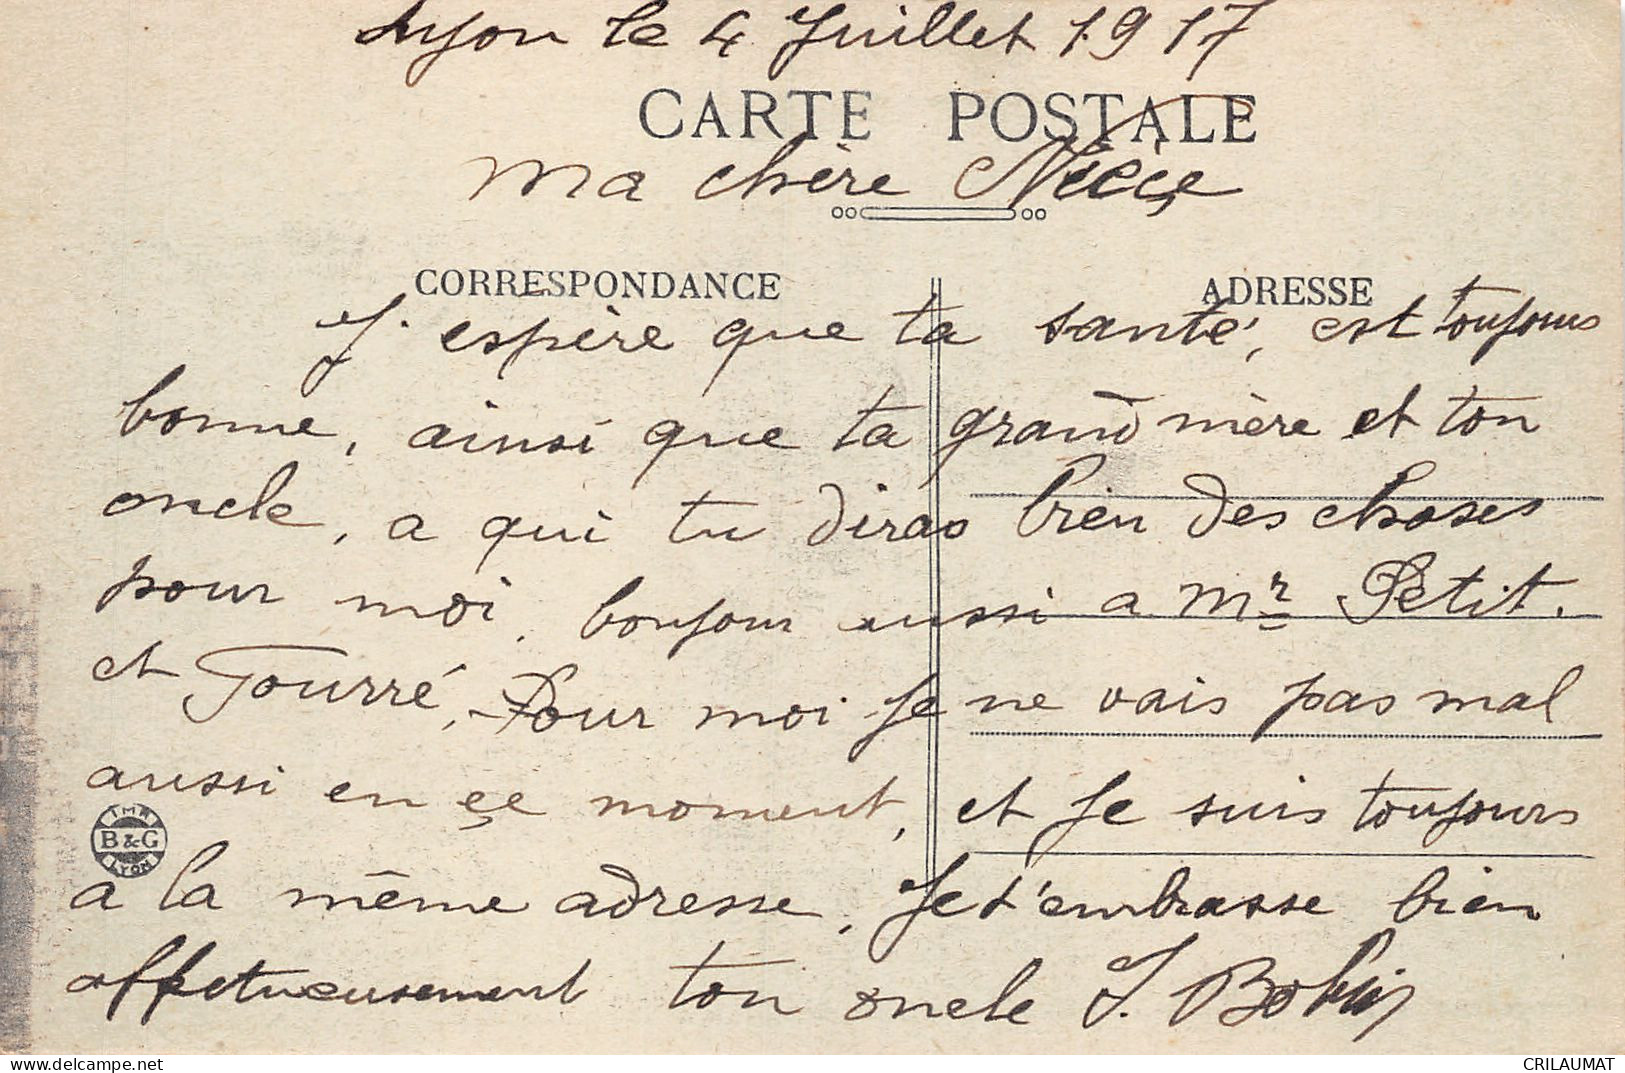 Lyon le 4 Juillet 1917
CARTE POSTALE
Ma chère Nièce
CORRESPONDANCE
ADRESSE
J'espère que ta santé, est toujours
bonne, ainsi que ta grand mère et ton
oncle, a qui tu diras bien des choses
pour moi, bonjour aussi a Mr Petit.
et Tourré, Pour moi je ne vais pas mal
aussi en çe moment, et je suis toujours
IMP. B & G LYON
a la même adresse, Je t'embrasse bien
affetueusement ton oncle J. Bobin
www.delcampe.net
CRILAUMAT